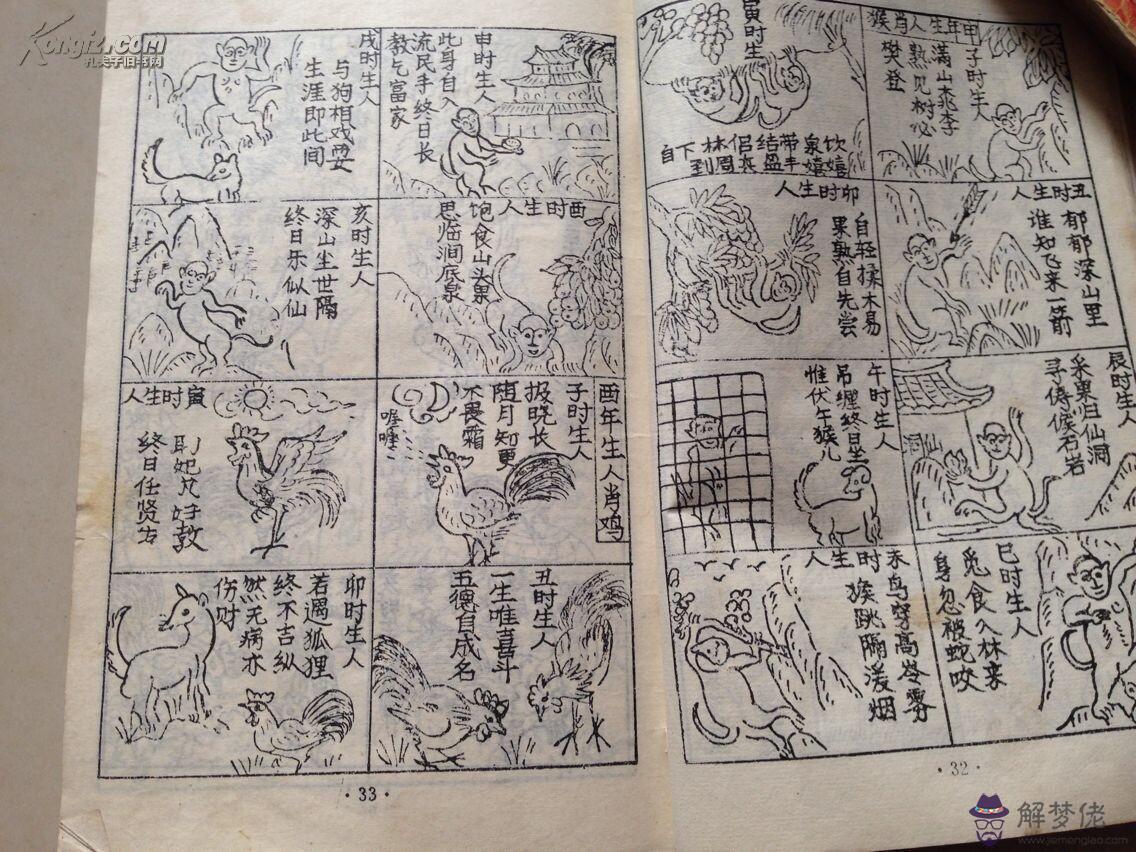 申年生人肖猴
子时生人
满山桃李
熟见树必
樊登
丑时生人
郁郁深山里
谁知飞来一箭
寅时生
饮泉带结侣林下自
嬉嬉丰盈周到
卯时生人
自轻揉木易
果熟自先尝
辰时生人
采果归仙洞
寻侍候石岩
巳时生人
觅食入林来
身忽被蛇咬
午时生人
吊缠终日坐
惟伏午猴儿
未时生人
鸟穿高岑雾
猴跳隔漫烟
·32·
申时生人
此身自入
流民手终日长
教乞富家
酉时生人
饱食山头果
思临涧底泉
戌时生人
与狗相戏耍
生涯即此间
亥时生人
深山尘世隔
终日乐似仙
酉年生人肖鸡
子时生人
报晓长
随月知更
不畏霜
喔喔
丑时生人
一生唯喜斗
五德自成名
寅时生人
终日任贤
卯时生人
若遇狐狸
终不吉纵
然无病亦
伤财
·33·
Kongfz.com
孔夫子旧书网
解梦佬
www.jiemenglao.com